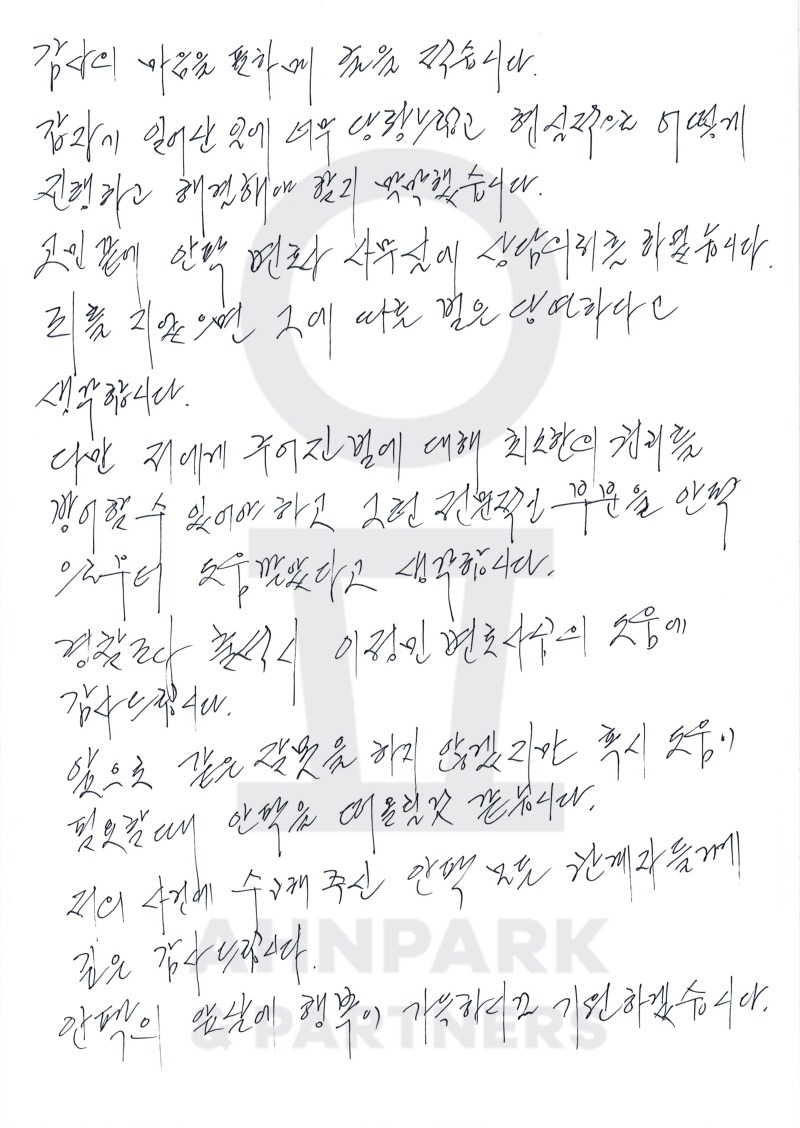 감사의 마음을 표하며 글을 적습니다.
갑자기 일어난 일에 너무 당황스럽고 현실적으로 어떻게
진행하고 해결해야 할지 막막했습니다.
고민 끝에 안팍 변호사 사무실에 상담의뢰를 하였습니다.
죄를 지었으면 그에 따른 벌은 당연하다고
생각합니다.
다만 저에게 주어진 벌에 대해 최소한의 권리를
방어할 수 있어야 하고 그런 전문적인 부분을 안팍
으로부터 도움 받았다고 생각합니다.
경찰조사 출석시 이정민 변호사님의 도움에
감사드립니다.
앞으로 같은 잘못을 하지 않겠지만 혹시 도움이
필요할때 안팍을 떠올릴것 같습니다.
저의 사건에 수고해 주신 안팍 모든 관계자들에게
깊은 감사드립니다.
안팍의 앞날에 행복이 가득하시길 기원하겠습니다.
AHNPARK
& PARTNERS